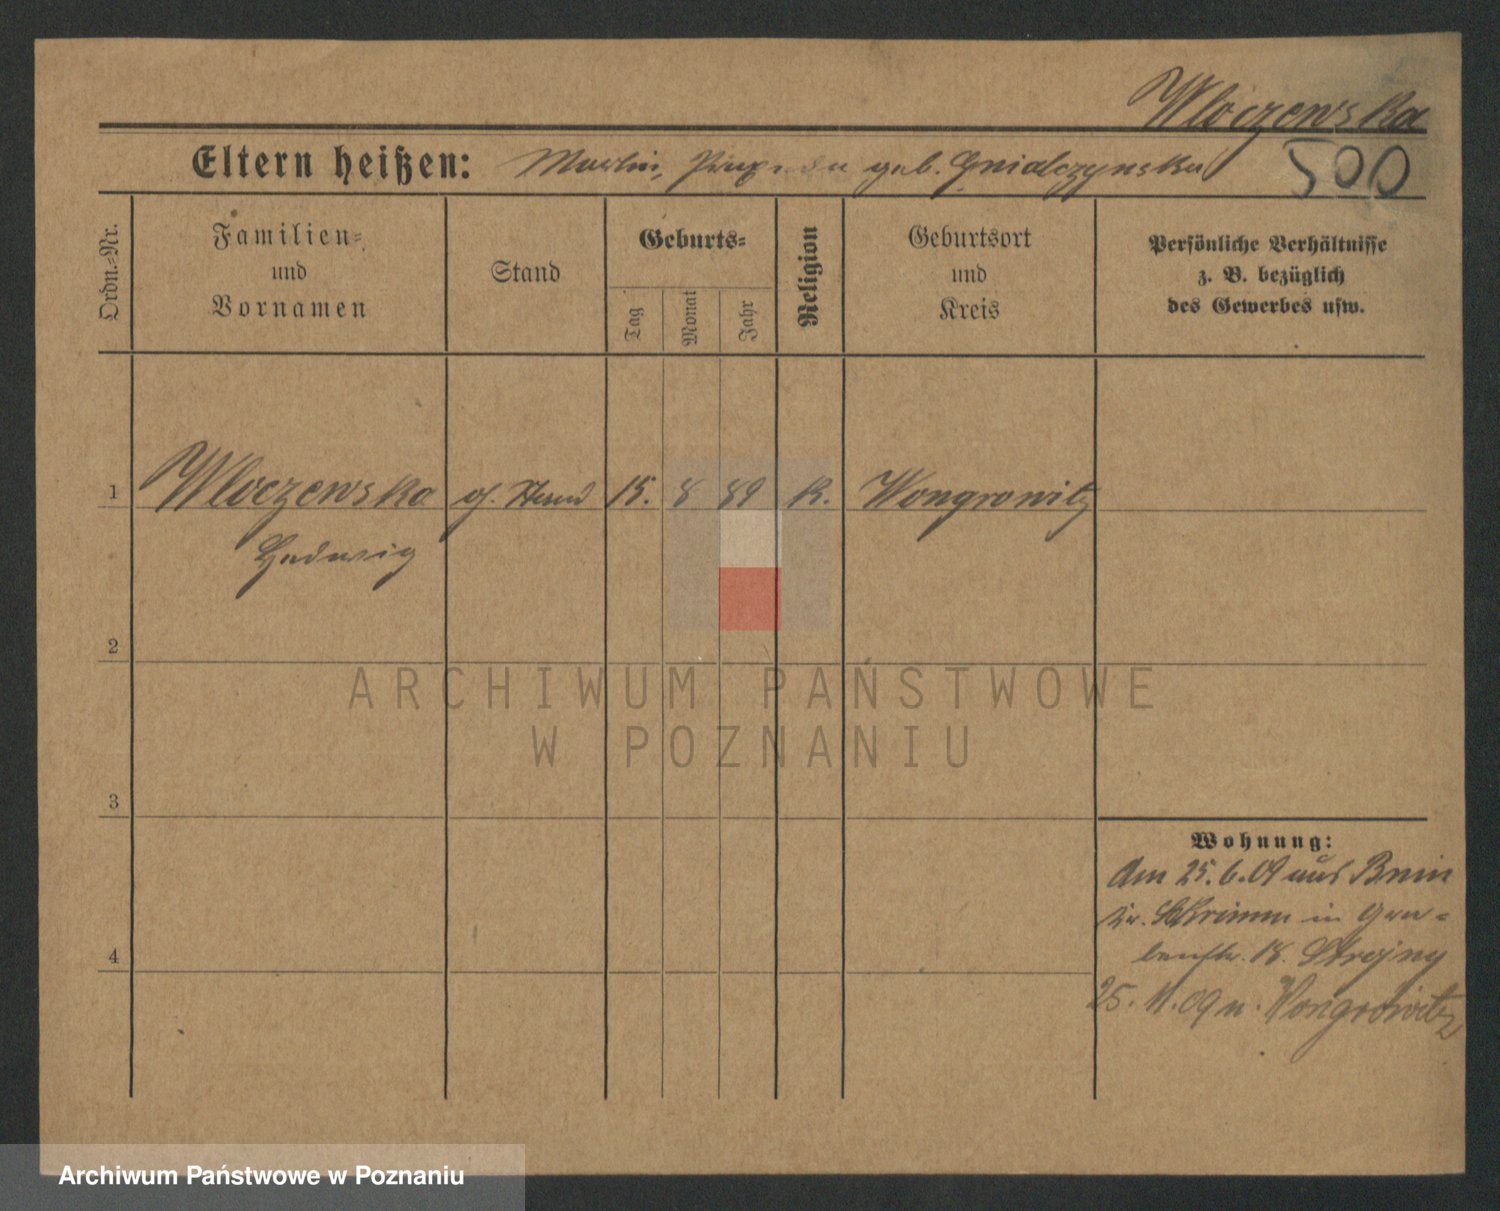 Wloczewska
Eltern heißen: Martin, geb. Gnialczynska
500
Ordn.=Nr.
Familien=
und
Vornamen
Stand
Geburts=
Tag
Monat
Jahr
Religion
Geburtsort
und
Kreis
Persönliche Verhältnisse
z. B. bezüglich
des Gewerbes usw.
1 Wloczewska o/. Stand 15. 8 89 K. Wongrowitz
Hedwig
2
3
4
Wohnung:
Am 25.6.09 aus Bnin
Kr. Schrimm in Gra=
benstr. 18. Strojny
25.11.09 n. Wongrowitz
ARCHIWUM PAŃSTWOWE
W POZNANIU
Archiwum Państwowe w Poznaniu